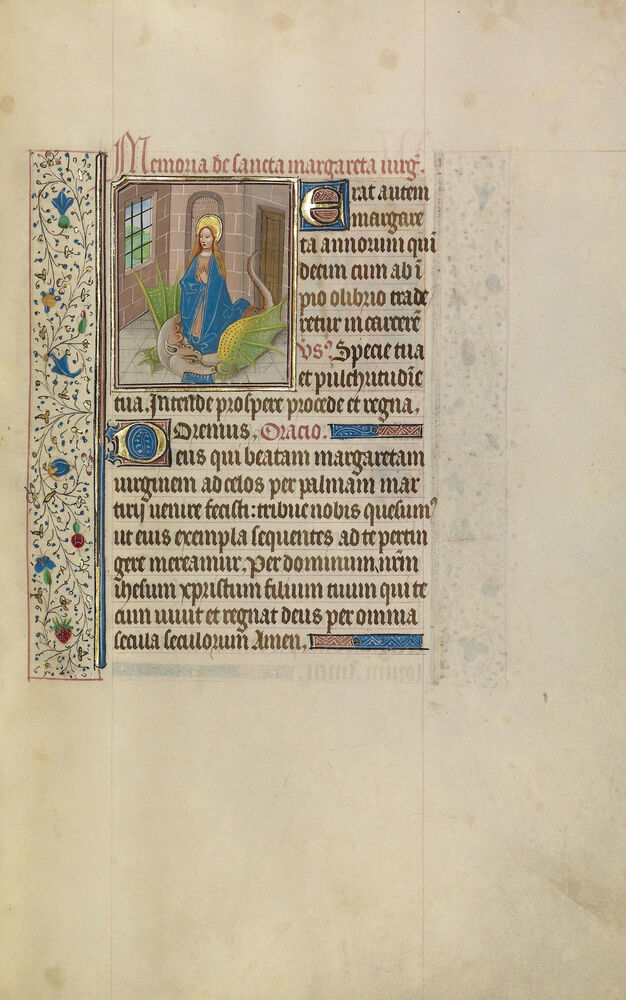 Memoria de sancta margareta uirg̃.
Erat autem
margare
ta annorum qui
decim cum ab ī
pio olibrio trade
retur in carcerē
Vs᷒ Specie tua
et pulchritudīe
tua, Intende prospere procede et regna,
Oremus, Oracio.
Deus qui beatam margaretam
uirginem ad celos per palmam mar
tirij uenire fecisti: tribue nobis quesumꝰ
ut eius exempla sequentes ad te pertin
gere mereamur, Per dominum, nr̄m
ihesum xpristum filium tuum qui te
cum uiuit et regnat deus per omnia
secula seculorum Amen,